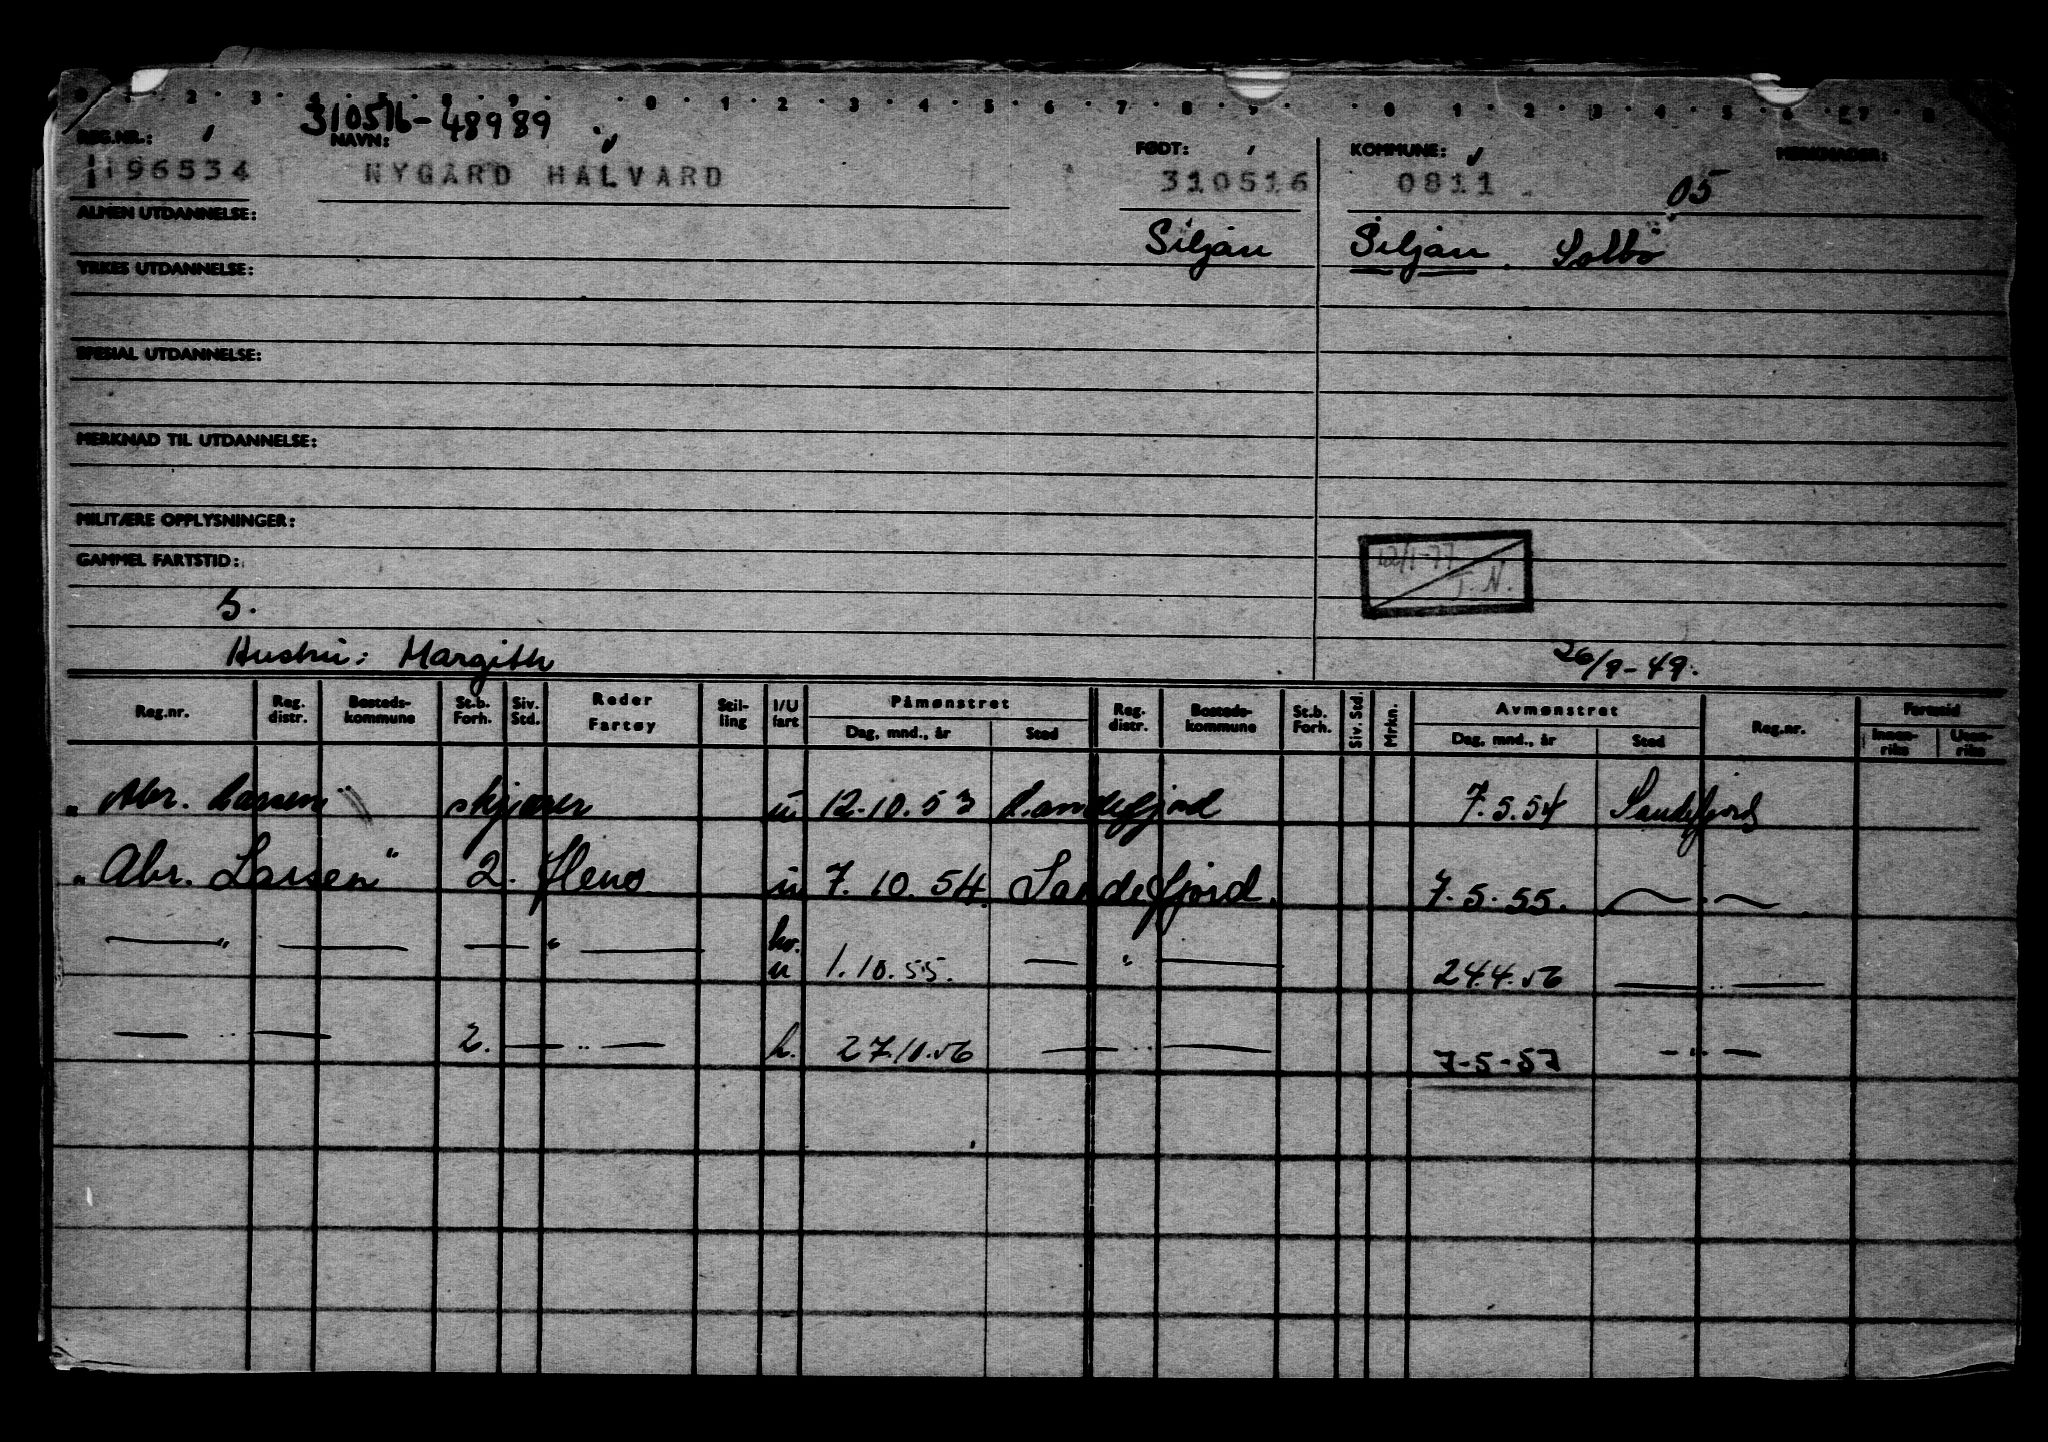 0 1 2 3 4 5 6 7 8 9 0 1 2 3 4 5 6 7 8 9 0 1 2 3 4 5 6 7 8
310516-48989
REG.NR.: NAVN: FØDT: KOMMUNE: MERKNADER:
196534 NYGÅRD HALVARD 310516 0811 05
ALMEN UTDANNELSE: Siljan Siljan Solbö
YRKES UTDANNELSE:
SPESIAL UTDANNELSE:
MERKNAD TIL UTDANNELSE:
MILITÆRE OPPLYSNINGER:
GAMMEL FARTSTID:
T.N.
5.
Hustru: Margith 26/9-49.
Reg.nr. Reg. distr. Bosteds-kommune St.b. Forh. Siv. Std. Reder Fartøy Stil-ling I/U fart Påmønstret Dag, mnd., år Sted Reg. distr. Bosteds-kommune St.b. Forh. Siv. Std. Mrkn. Avmønstret Dag, mnd., år Sted Reg.nr. Fartstid Innen-riks Uten-riks
"Abr. Larsen" skjærer u. 12.10.53 Sandefjord 7.5.54 Sandefjord
"Abr. Larsen" 2. u 7.10.54 Sandefjord. 7.5.55. — " —
— " — — " — hv. u 1.10.55. — " — 24.4.56 — " —
— " — 2. — " — h. 27.10.56 — " — 7-5-57 — " —